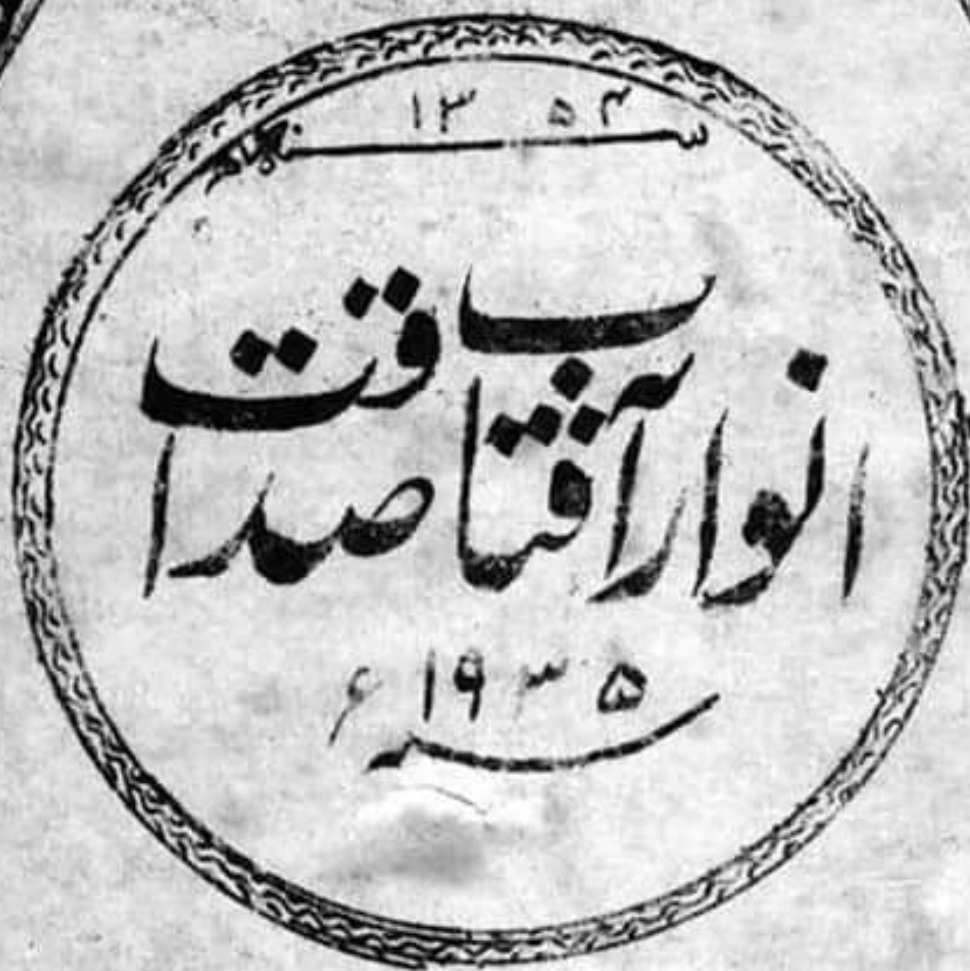 سنہ ۱۳۵۴
انوار آفتاب صداقت
سنہ ۱۹۳۵ء